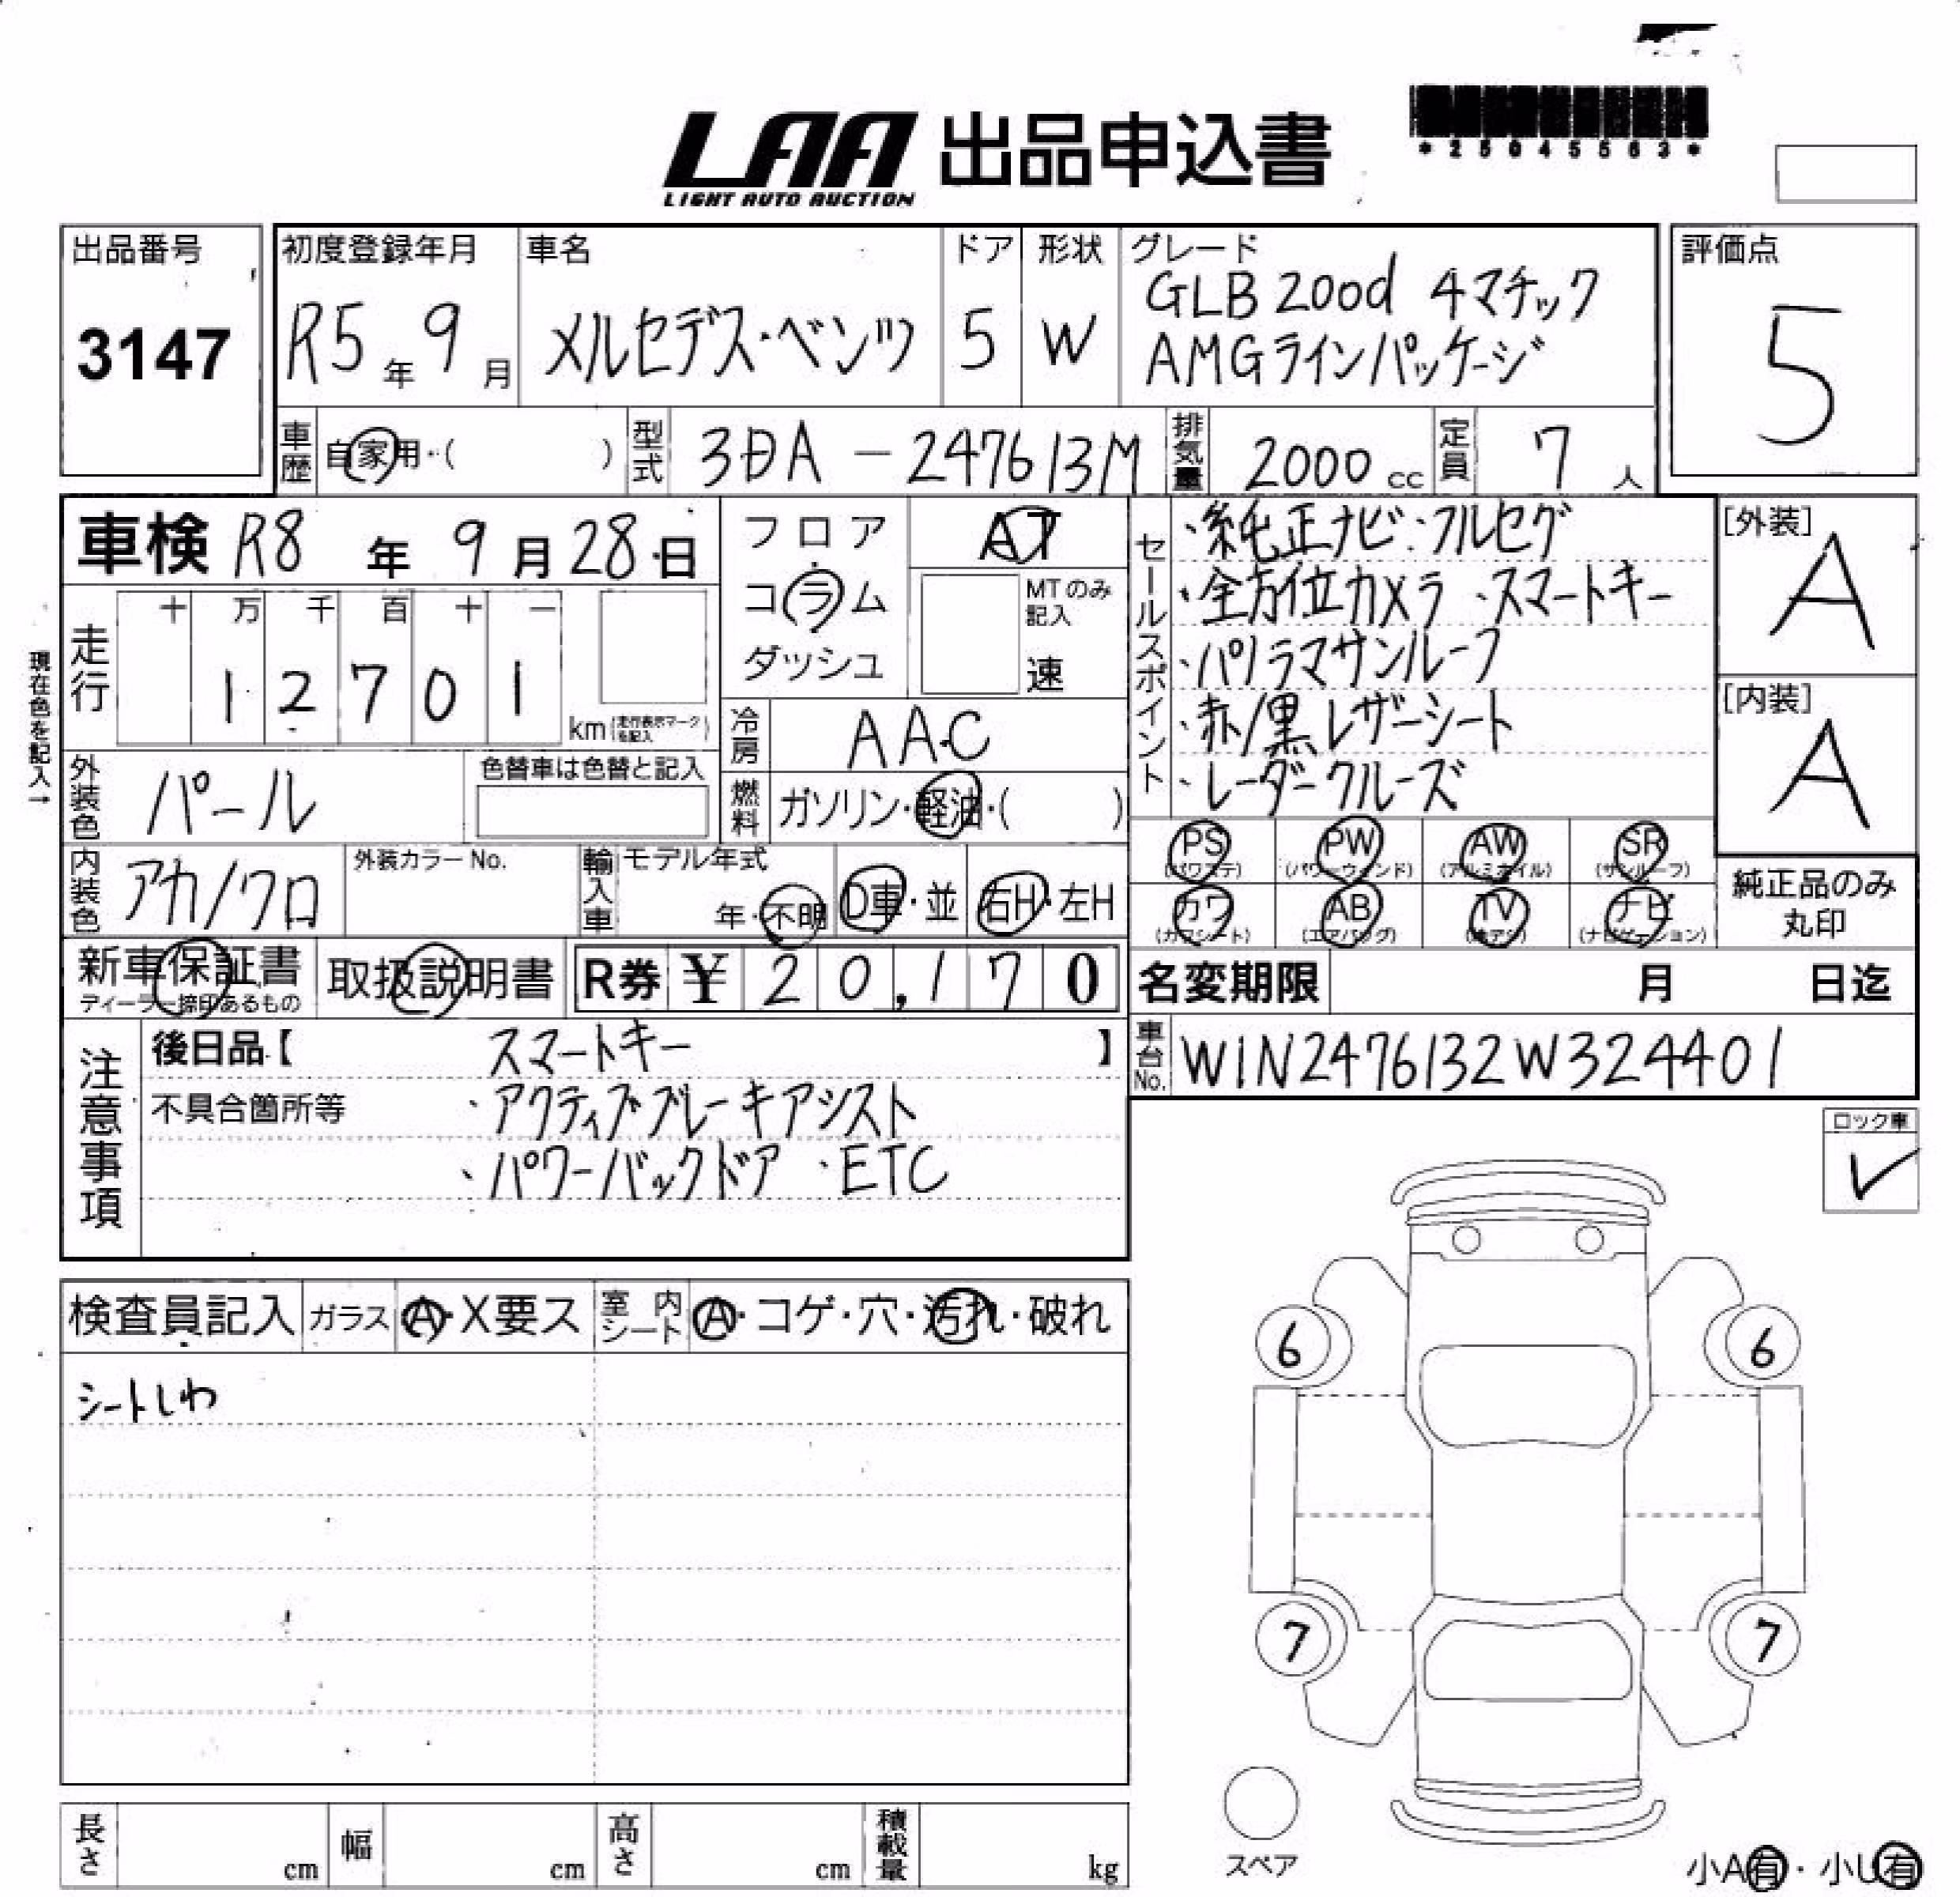 LAA 出品申込書
LIGHT AUTO AUCTION
*25045563*
出品番号
3147
初度登録年月
R5年9月
車名
メルセデス・ベンツ
ドア
5
形状
W
グレード
GLB 200d 4マチック
AMGラインパッケージ
評価点
5
車歴 自家用・( )
型式 3DA-247613M
排気量 2000cc
定員 7人
車検 R8年9月28日
フロア
コラム
ダッシュ
AT
MTのみ
記入
速
走行
十 万 千 百 十 一
1 2 7 0 1
km(走行表示マークを記入)
現在色を記入→
冷房 AAC
外装色 パール
色替車は色替と記入
燃料 ガソリン・軽油・( )
内装色 アカ/クロ
外装カラーNo.
輸入車 モデル年式
年・不明
D車・並
右H・左H
セールスポイント
・純正ナビ・フルセグ
・全方位カメラ ・スマートキー
・パノラマサンルーフ
・赤/黒レザーシート
・レーダークルーズ
[外装]
A
[内装]
A
PS (パワステ)
PW (パワーウィンド)
AW (アルミホイル)
SR (サンルーフ)
カワ (カワシート)
AB (エアバッグ)
TV (テレビ)
ナビ (ナビゲーション)
純正品のみ
丸印
新車保証書
ディーラー捺印あるもの
取扱説明書
R券 ¥20,170
名変期限 月 日迄
車台No. W1N2476132W324401
注意事項
後日品【 スマートキー 】
不具合箇所等 ・アクティブブレーキアシスト
・パワーバックドア ・ETC
ロック車
✓
検査員記入
ガラス A・X要ス
室内シート A・コゲ・穴・汚れ・破れ
シートしわ
6 6
7 7
スペア
長さ cm
幅 cm
高さ cm
積載量 kg
小A有・小U有